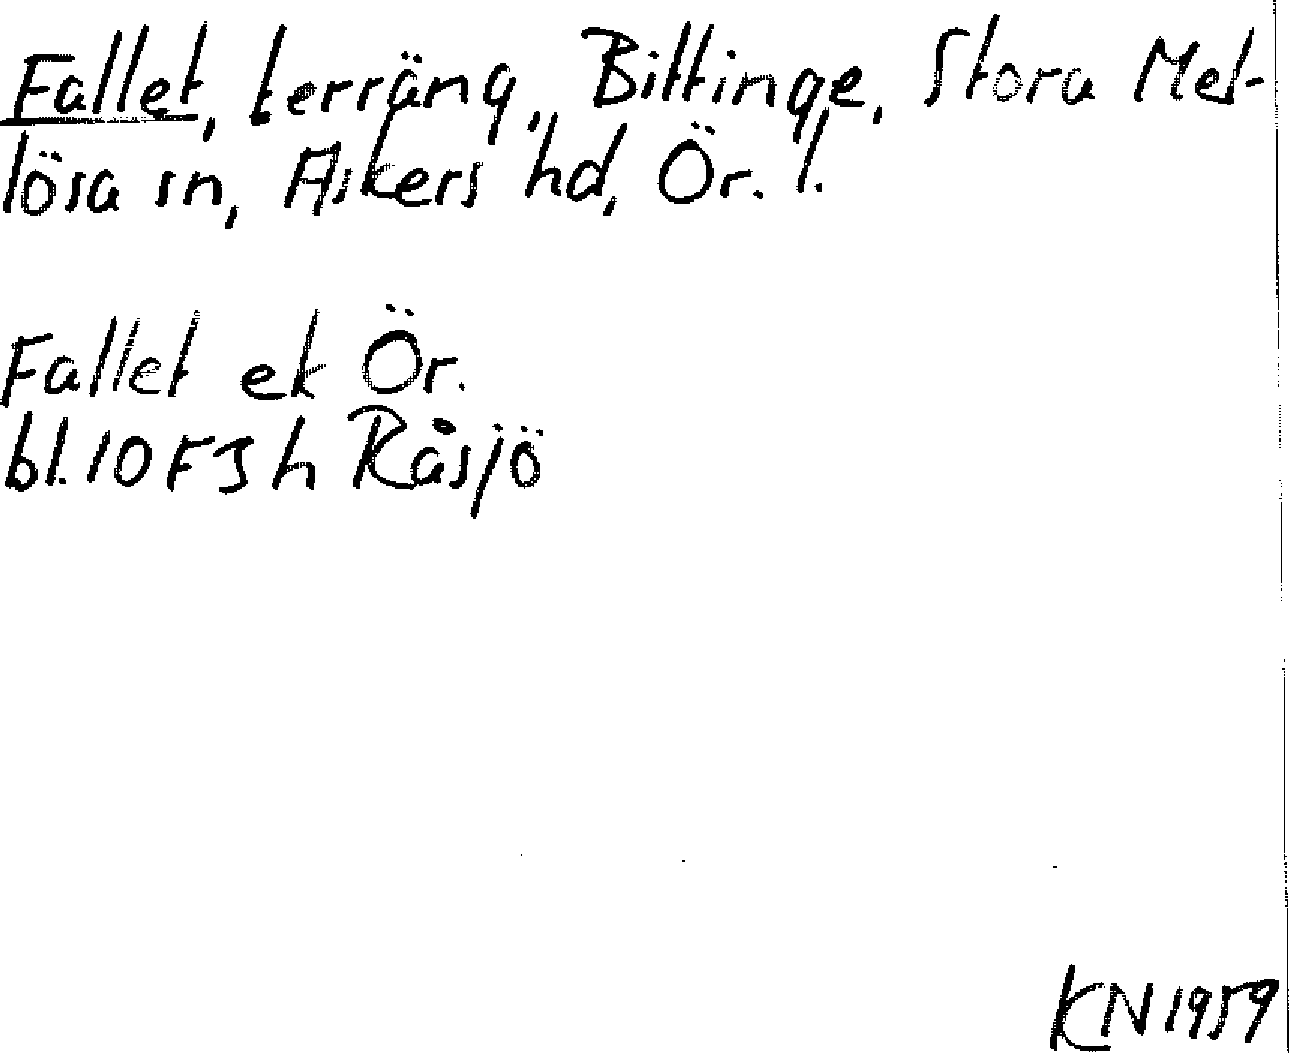 Fallet, terräng, Bittinge, Stora Mel-
lösa sn, Askers hd, Ör. l.
Fallet ek Ör.
bl. 10 F 3 h Råsjö
KN 1959